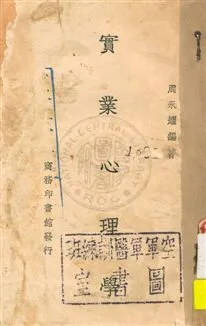 周永耀編著
實業心理學
商務印書館發行
空軍軍醫訓練班
圖書室
CENTRAL
ROC